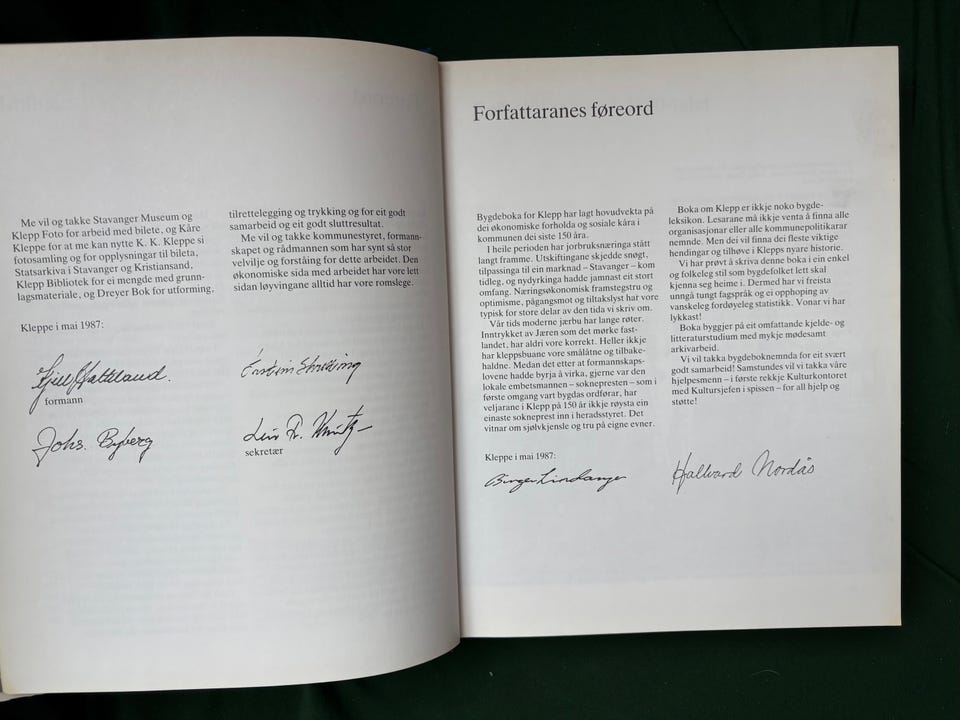 Me vil og takke Stavanger Museum og
Klepp Foto for arbeid med bilete, og Kåre
Kleppe for at me kan nytte K. K. Kleppe si
fotosamling og for opplysningar til bileta,
Statsarkiva i Stavanger og Kristiansand,
Klepp Bibliotek for ei mengde med grunn-
lagsmateriale, og Dreyer Bok for utforming,
tilrettelegging og trykking og for eit godt
samarbeid og eit godt sluttresultat.
Me vil og takke kommunestyret, formann-
skapet og rådmannen som har synt så stor
velvilje og forståing for dette arbeidet. Den
økonomiske sida med arbeidet har vore lett
sidan løyvingane alltid har vore romslege.
Kleppe i mai 1987:
formann
Johs. Byberg
sekretær
Forfattaranes føreord
Bygdeboka for Klepp har lagt hovudvekta på
dei økonomiske forholda og sosiale kåra i
kommunen dei siste 150 åra.
I heile perioden har jorbruksnæringa stått
langt framme. Utskiftingane skjedde snøgt,
tilpassinga til ein marknad – Stavanger – kom
tidleg, og nydyrkinga hadde jamnast eit stort
omfang. Næringsøkonomisk framstegstru og
optimisme, pågangsmot og tiltakslyst har vore
typisk for store delar av den tida vi skriv om.
Vår tids moderne jærbu har lange røter.
Inntrykket av Jæren som det mørke fast-
landet, har aldri vore korrekt. Heller ikkje
har kleppsbuane vore smålåtne og tilbake-
haldne. Medan det etter at formannskaps-
lovene hadde byrja å virka, gjerne var den
lokale embetsmannen – soknepresten – som i
første omgang vart bygdas ordførar, har
veljarane i Klepp på 150 år ikkje røysta ein
einaste sokneprest inn i heradsstyret. Det
vitnar om sjølvkjensle og tru på eigne evner.
Kleppe i mai 1987:
Birger Lindanger
Boka om Klepp er ikkje noko bygde-
leksikon. Lesarane må ikkje venta å finna alle
organisasjonar eller alle kommunepolitikarar
nemnde. Men dei vil finna dei fleste viktige
hendingar og tilhøve i Klepps nyare historie.
Vi har prøvt å skriva denne boka i ein enkel
og folkeleg stil som bygdefolket lett skal
kjenna seg heime i. Dermed har vi freista
unngå tungt fagspråk og ei opphoping av
vanskeleg fordøyeleg statistikk. Vonar vi har
lykkast!
Boka byggjer på eit omfattande kjelde- og
litteraturstudium med mykje mødesamt
arkivarbeid.
Vi vil takka bygdeboknemnda for eit svært
godt samarbeid! Samstundes vil vi takka våre
hjelpesmenn – i første rekkje Kulturkontoret
med Kultursjefen i spissen – for all hjelp og
støtte!
Hallvard Nordås